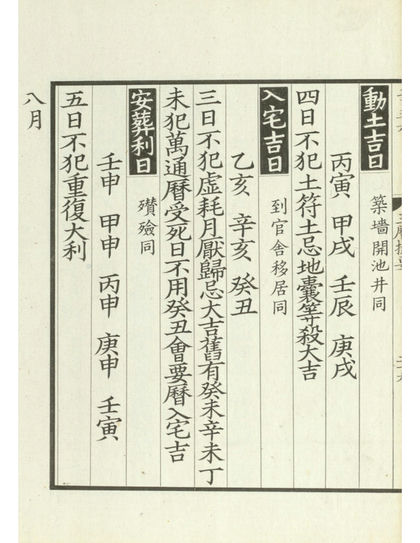 動土吉日 築墻開池井同
丙寅 甲戌 壬辰 庚戌
四日不犯土符土忌地囊等殺大吉
入宅吉日 到官舍移居同
乙亥 辛亥 癸丑
三日不犯虛耗月厭歸忌大吉舊有癸未辛未丁
未犯萬通曆受死日不用癸丑會要曆入宅吉
安葬利日 殯殮同
壬申 甲申 丙申 庚申 壬寅
五日不犯重復大利
八月